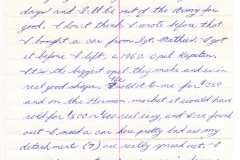 days and I'll be out of the Army for
good. I don't think I wrote before that
I bought a car from Sgt. Mathis. I got
it before I left, a 1962 Opel Kapitan.
It is the biggest opel they make and is in
real good shape. He sold it to me for $350
and on the German market it would have
sold for $500 or 600 real easy, and
I need a car here pretty bad as my
detachment (9) are really spread out. I